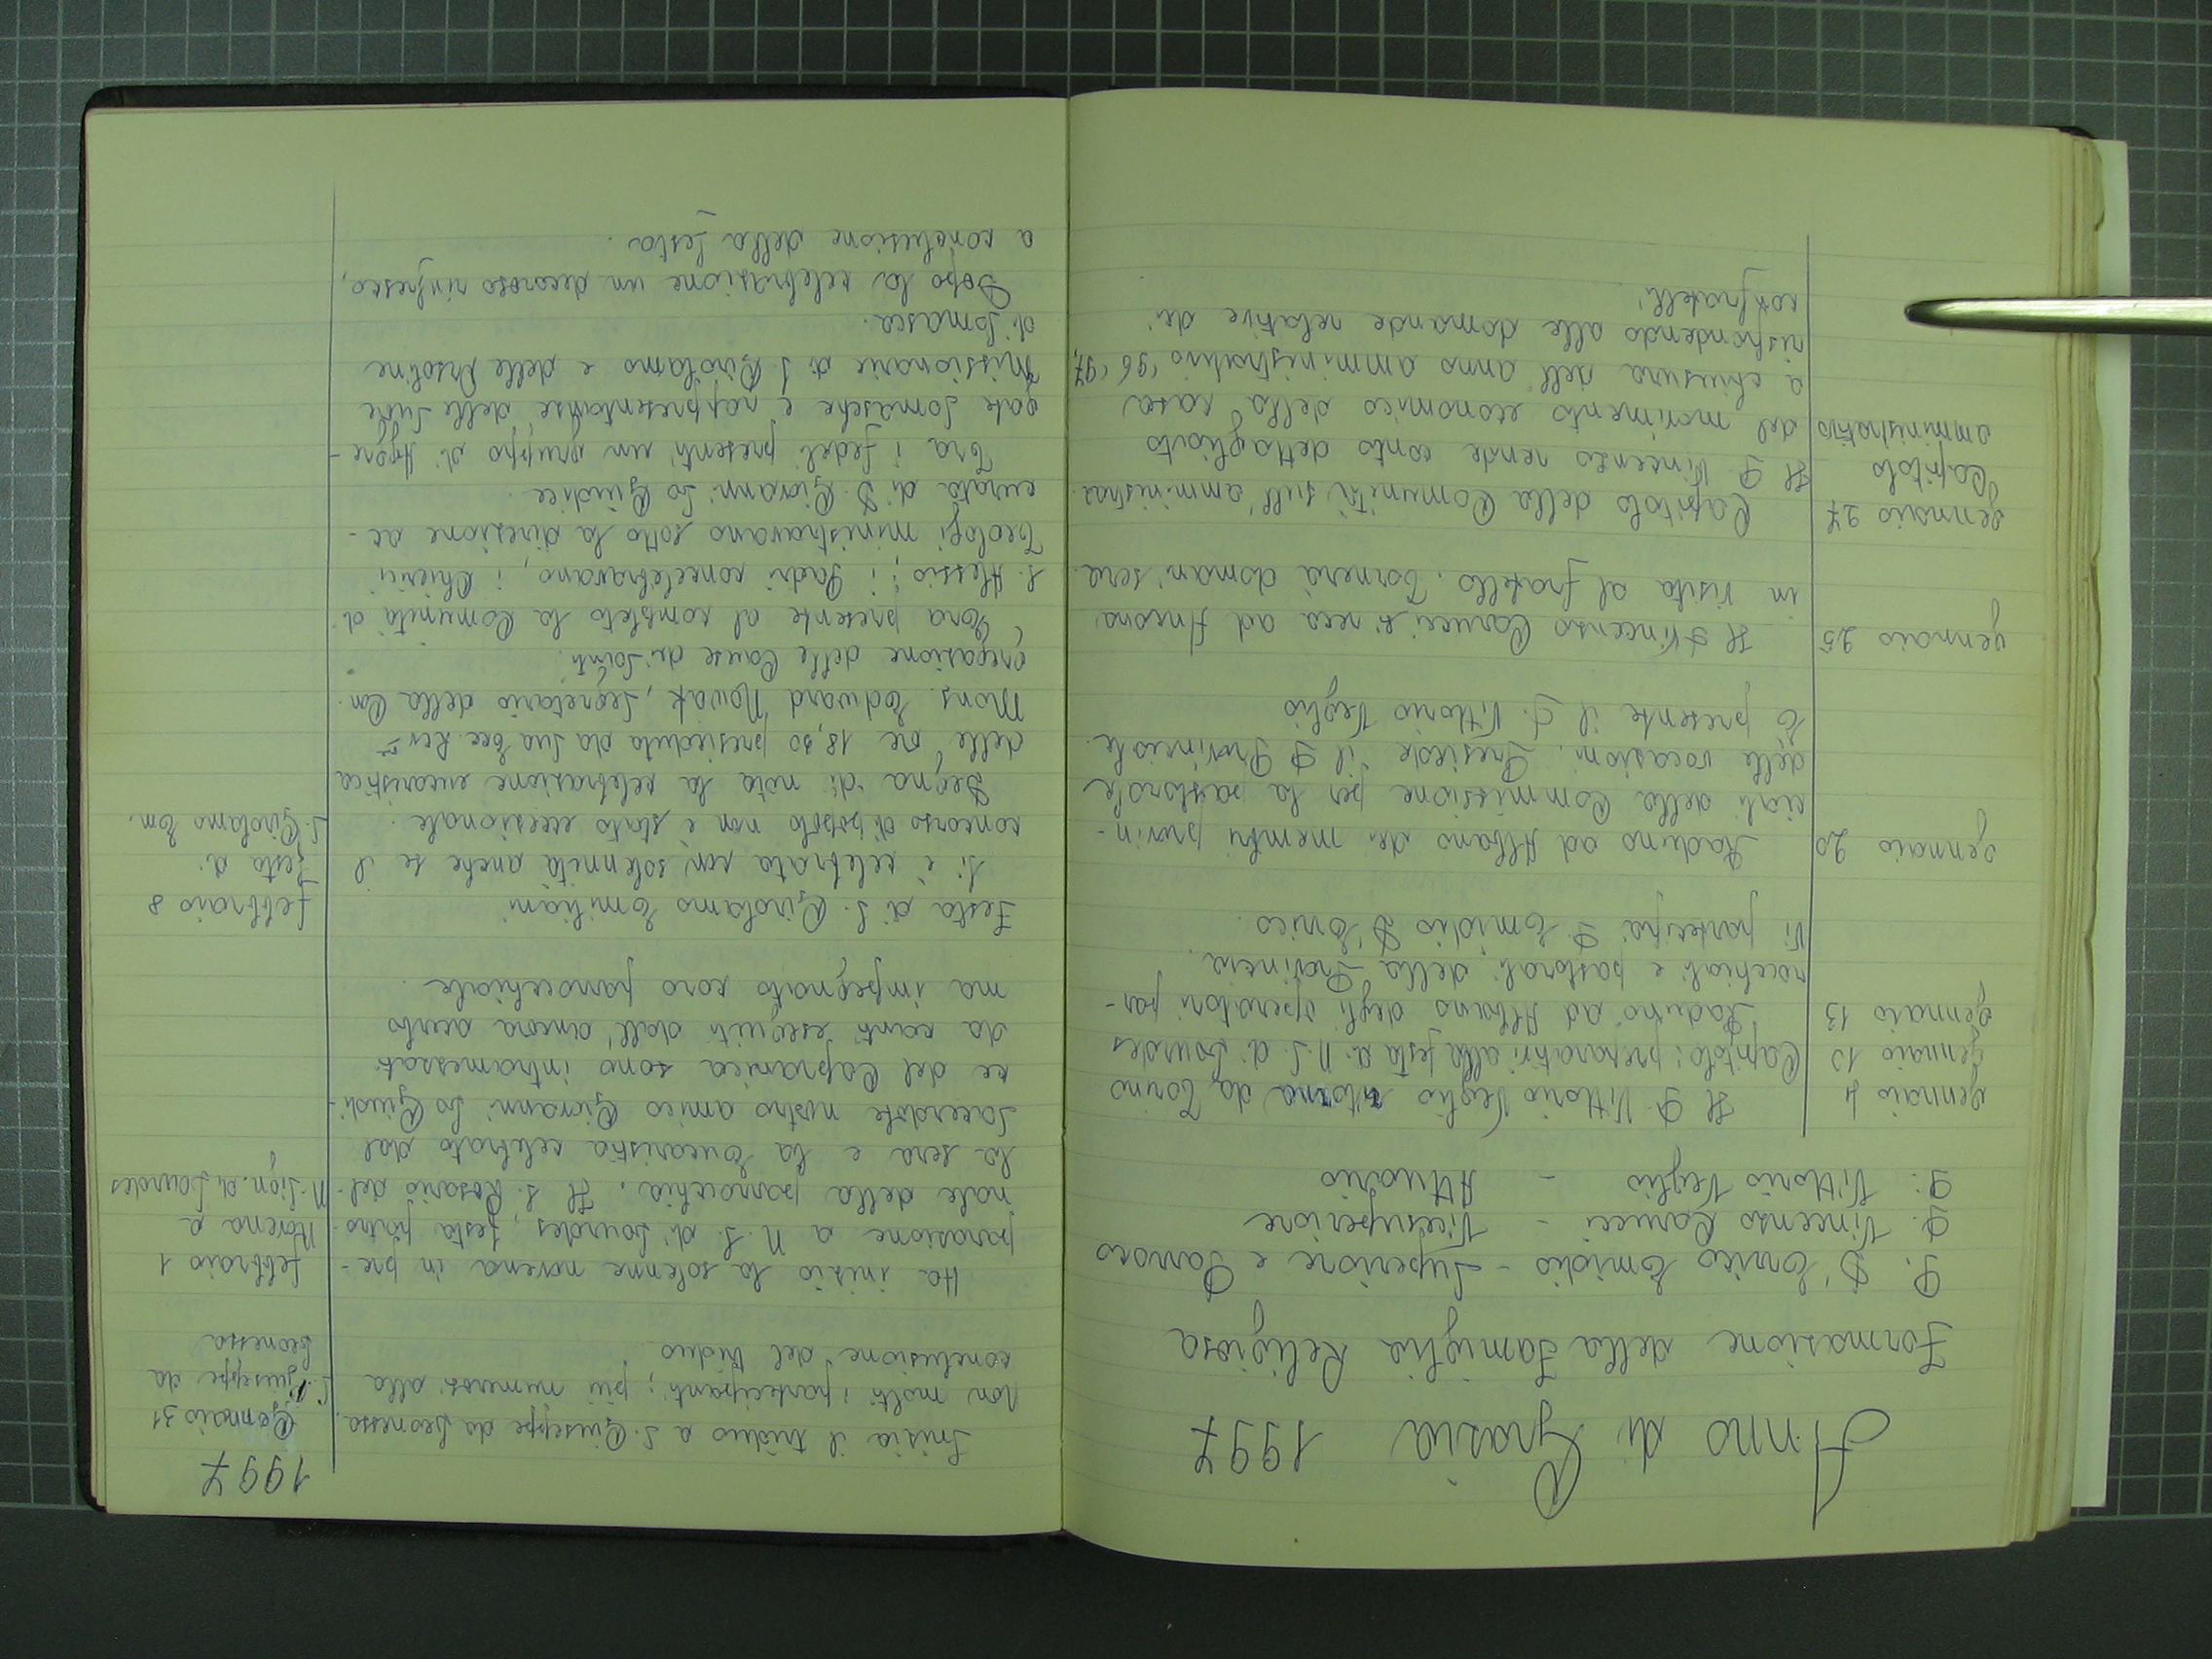 Anno di Grazia 1997
Formazione della Famiglia Religiosa
P. D'Enrico Emidio - Superiore e Parroco
P. Vincenzo Carucci - Vicesuperiore
P. Vittorio Veglio - Attuario
gennaio 4 Il P. Vittorio Veglio ritorna da Torino
gennaio 10 Capitolo: preparativi alla festa di N. S. di Lourdes
gennaio 13 Raduno ad Albano degli operatori par-
rocchiali e pastorali della Provincia.
Vi partecipa P. Emidio D'Enrico.
gennaio 20 Raduno ad Albano dei membri provin-
ciali della Commissione per la pastorale
delle vocazioni. Presiede il P. Provinciale.
È presente il P. Vittorio Veglio
gennaio 25 Il P. Vincenzo Carucci si reca ad Ancona
in visita al fratello. Tornerà domani sera.
gennaio 27 Capitolo della Comunità sull'amministraz.
Capitolo Il P. Vincenzo rende conto dettagliato
amministrativo del movimento economico della casa
a chiusura dell'anno amministrativo '96 '97,
rispondendo alle domande relative dei
confratelli.
1997
Gennaio 31 Inizia il triduo a S. Giuseppe da Leonessa.
S. Giuseppe da Non molti i partecipanti; più numerosi alla
Leonessa conclusione del triduo.
febbraio 1 Ha inizio la solenne novena in pre-
Novena a parazione a N. S. di Lourdes, festa patro-
N. Sign. di Lourdes nale della parrocchia. Il S. Rosario del-
la sera e la Eucaristia celebrata dal
Sacerdote nostro amico Giovanni Lo Giudi-
ce del Capranica sono intramezzati
da canti eseguiti dall'ancora acerbo
ma impegnato coro parrocchiale.
febbraio 8 Festa di S. Girolamo Emiliani
Festa di Si è celebrata con solennità anche se il
S. Girolamo Em. concorso di popolo non è stato eccezionale.
Degna di nota la celebrazione eucaristica
delle ore 18,30 presieduta da Sua Ecc. Rev.ma
Mons. Edward Nowak, Segretario della Con-
gregazione delle Cause dei Santi.
Era presente al completo la Comunità di
S. Alessio; i Padri concelebravano, i Chierici
Teologi ministravano sotto la direzione ac-
curata di D. Giovanni Lo Giudice.
Tra i fedeli presenti un gruppo di Aggre-
gate Somasche e rappresentanze delle Suore
Missionarie di S. Girolamo e delle Orsoline
di Somasca.
Dopo la celebrazione un decoroso rinfresco,
a conclusione della festa.